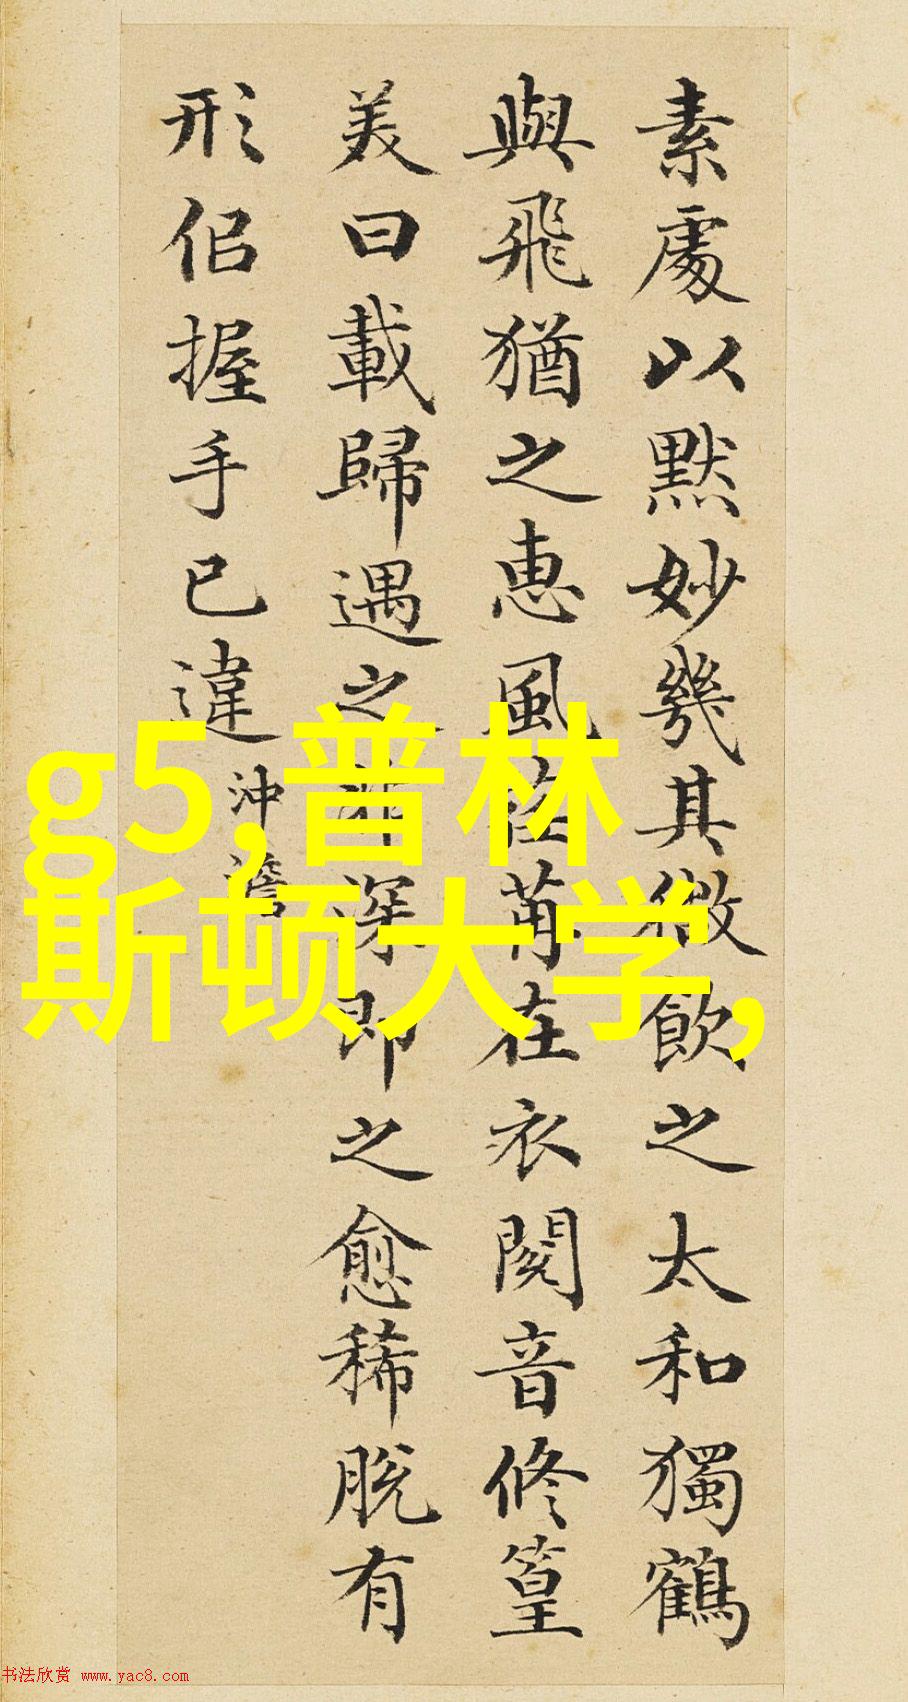 素處以默妙幾其微飲之太和獨鶴
與飛猶之惠風荏苒在衣閱音修篁
美曰載歸遇之非深即之愈稀脫有
形佀握手已違
沖澹
g5,普林
斯顿大学,
书法欣赏 www.yac8.com